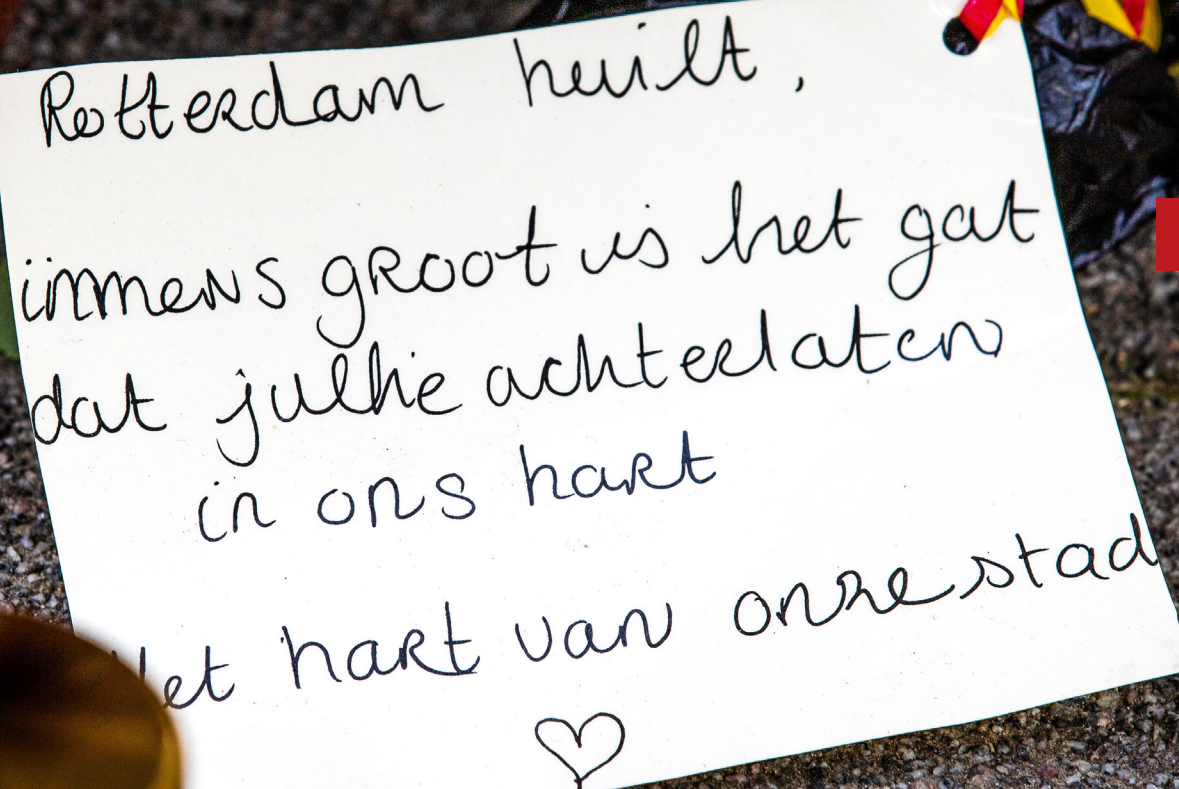 Rotterdam huilt,
immens groot is het gat
dat jullie achterlaten
in ons hart
Het hart van onze stad